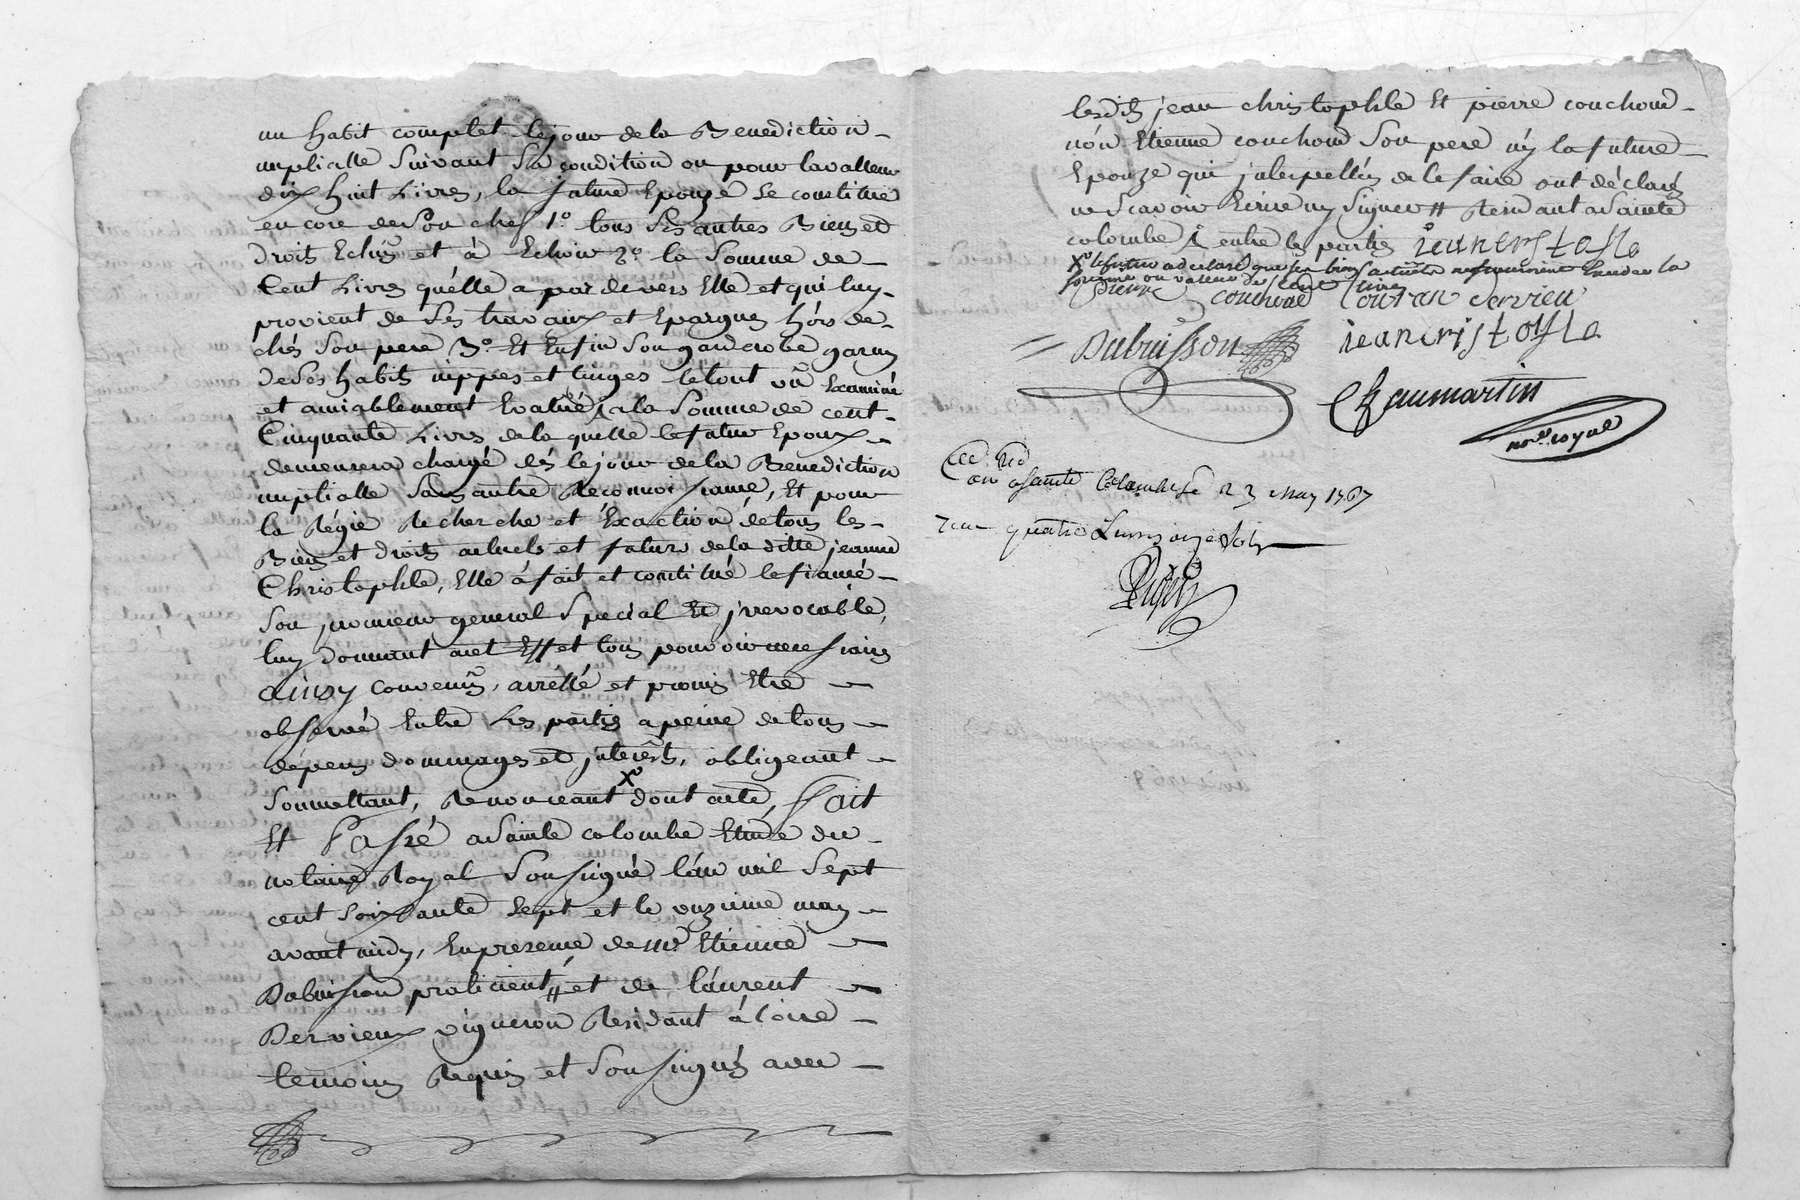 un habit complet le jour de la Benediction
nuptialle Suivant Sa condition ou pour la valleur
dix huit Livres, la future Epouze se constitue
en core de Son chef 1º tous Ses autres Biens et
droits Echus et à Echoir 2º la Somme de
Cent Livres qu'élle a par devers Elle et qui luy
provient de Ses travaux et Epargnes hórs de
chés Son pere 3º Et Enfin Son garderobe garny
de Ses habits nippes et linges le tout vû Examiné
et amiablement Evalué a la Somme de cent
Cinquante Livres de la quelle le futur Epoux
demeurera chargé dés le jour de la Benediction
nuptialle Sans autre Reconnoissance, Et pour
la Régie Recherche et Exaction de tous les
Biens et droits actuels et futurs de la ditte jeanne
Christophle, Elle á fait et constitué le fiancé
Son procureur general Special Et jrrevocable,
luy donnant a cet Effet tous pouvoir necessaires
ainsy convenu, arrétté et promis Etre
observé Entre Les parties a peine de tous
dépens dommages et jnterêts, obligeant
Soumettant, Renonceant Xº dont acte, fait
Et Passé a Sainte colombe Etude du
notaire Royal Soussigné l'án mil Sept
cent Soixante Sept et le onzieme may
avant midy, En presence de Mr. Etienne
Dubuisson praticient # et de láurent
Dervieux vigneron Residant á Loire
temoins Requis et Soussignés avec
lesdits jean christophle Et pierre couchoud
nón Etienne couchoud Son pere ny la future
Epouze qui jnterpellés de le faire ont déclarés
ne Scavoir Ecrire ny Signer # Residant a Sainte
colombe & entre les parties jean cristofle
Xº le futur a declaré que ses biens actuels
Somme ou valleur de Cent Livres
Pierre couchoud Louran Dervieu
Dubuisson jean cristofle
Chaumartin
nore. royal
a Sainte Colombe le 23 may 1767
Recu quatre Livres